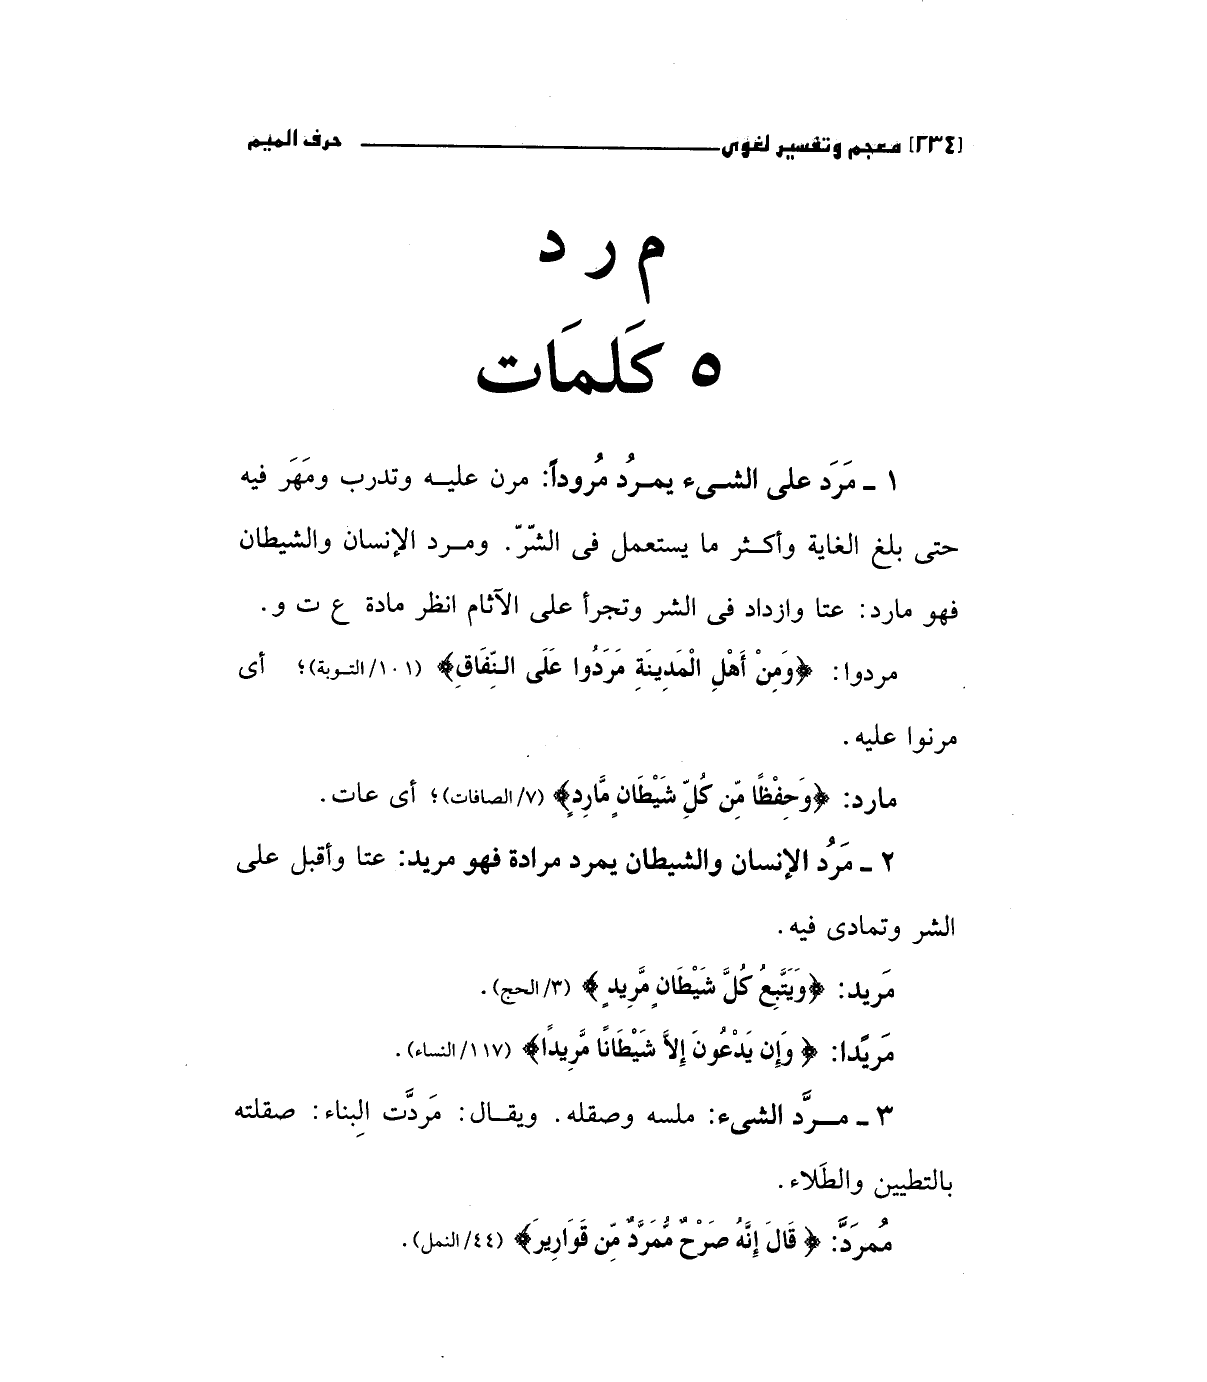 [٢٣٤] معجم وتفسير لغوى حرف الميم
م ر د
٥ كَلمَات
١ ـ مَرَد على الشىء يمرُد مُروداً: مرن عليه وتدرب ومَهَر فيه
حتى بلغ الغاية وأكثر ما يستعمل فى الشّرّ. ومرد الإنسان والشيطان
فهو مارد: عتا وازداد فى الشر وتجرأ على الآثام انظر مادة ع ت و.
مردوا: ﴿وَمِنْ أَهْلِ الْمَدِينَةِ مَرَدُوا عَلَى النِّفَاقِ﴾ (١٠١/التوبة)؛ أى
مرنوا عليه.
مارد: ﴿وَحِفْظًا مِّن كُلِّ شَيْطَانٍ مَّارِدٍ﴾ (٧/الصافات)؛ أى عات.
٢ ـ مَرُد الإنسان والشيطان يمرد مرادة فهو مريد: عتا وأقبل على
الشر وتمادى فيه.
مَريد: ﴿وَيَتَّبِعُ كُلَّ شَيْطَانٍ مَّرِيدٍ﴾ (٣/الحج).
مَريًدا: ﴿وَإِن يَدْعُونَ إِلاَّ شَيْطَانًا مَّرِيدًا﴾ (١١٧/النساء).
٣ ـ مرَّد الشىء: ملسه وصقله. ويقال: مَردَّت البِناء: صقلته
بالتطيين والطَلاء.
مُمرَدَّ: ﴿قَالَ إِنَّهُ صَرْحٌ مُّمَرَّدٌ مِّن قَوَارِيرَ﴾ (٤٤/النمل).